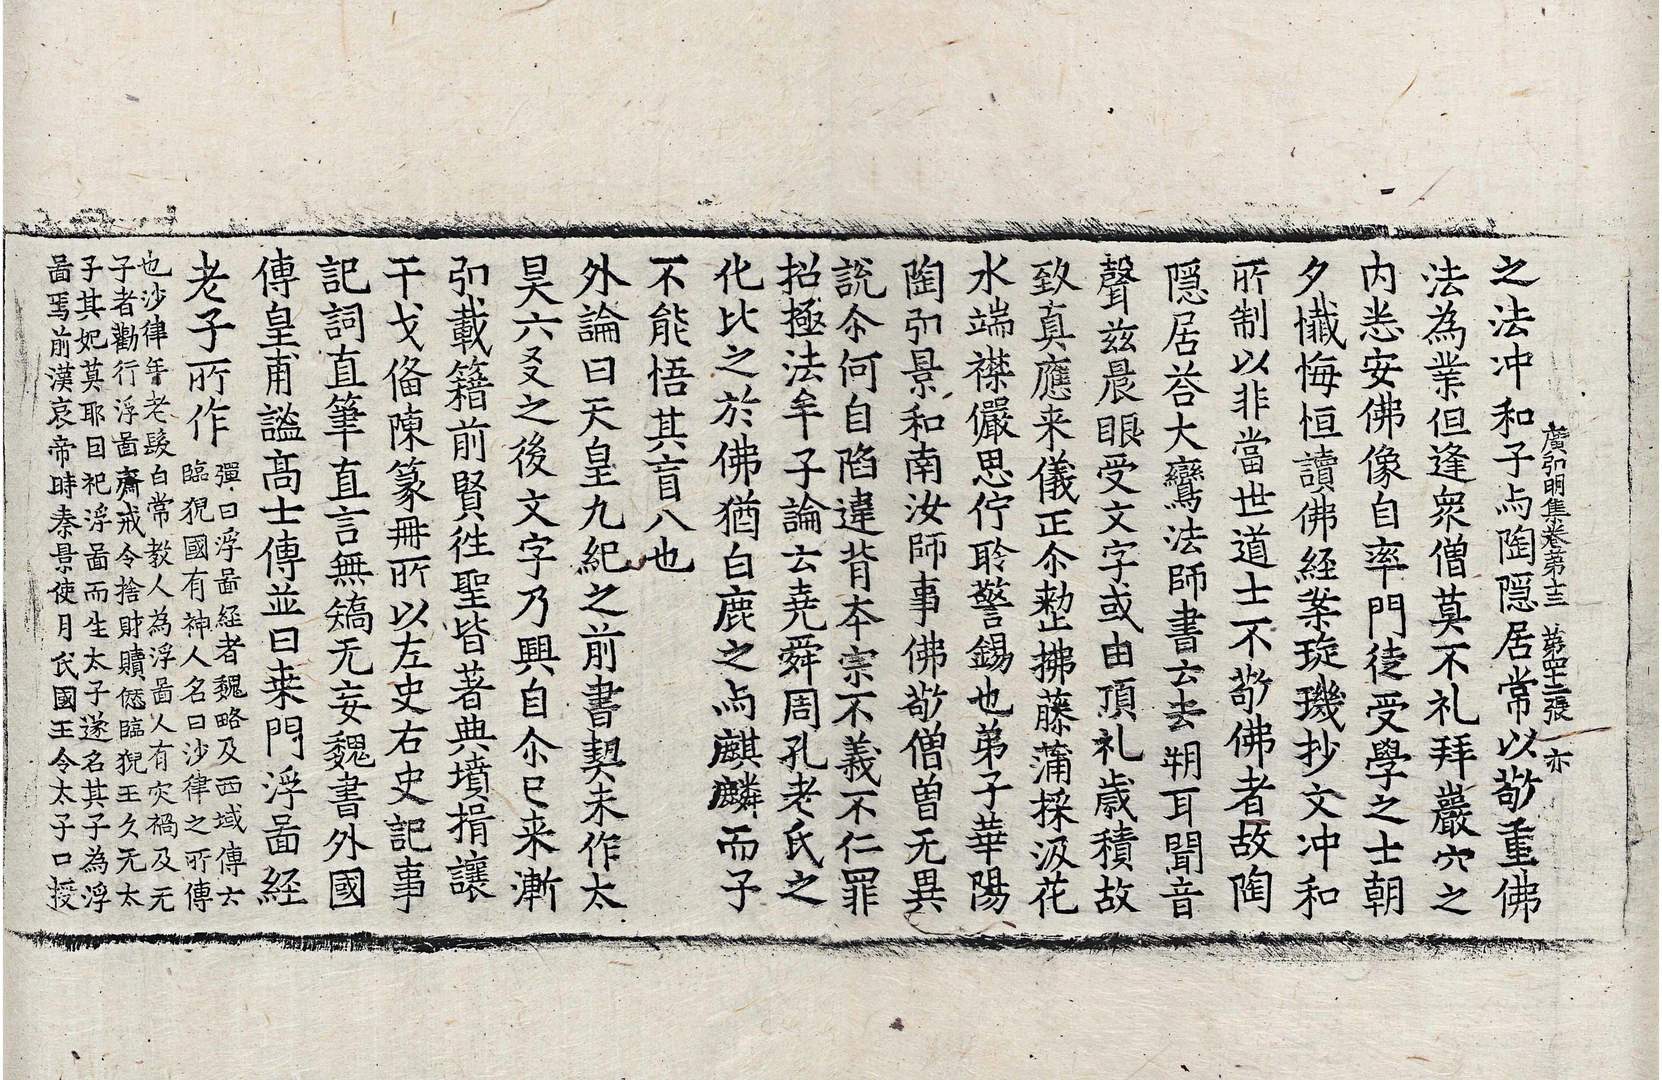 廣弘明集卷第十三　第四十二張　亦
之法冲和子与陶隱居常以敬重佛
法為業但逢衆僧莫不礼拜巖穴之
内悉安佛像自率門徒受學之士朝
夕懺悔恒讀佛經案琁璣抄文冲和
所制以非當世道士不敬佛者故陶
隱居荅大鸞法師書云去朔耳聞音
聲茲晨眼受文字或由頂礼歲積故
致真應来儀正尒勑拂藤蒲採汲花
水端襟儼思佇聆警錫也弟子華陽
陶弘景和南汝師事佛敬僧曽无異
說尒何自陷違背本宗不義不仁罪
招極法牟子論云堯舜周孔老氏之
化比之於佛猶白鹿之与麒麟而子
不能悟其盲八也
外論曰天皇九紀之前書契未作太
昊六爻之後文字乃興自尒已来漸
弘載籍前賢徃聖皆著典墳揖讓
干戈俻陳篆冊所以左史右史記事
記詞直筆直言無矯无妄魏書外國
傳皇甫謐髙士傳並曰桒門浮啚經
老子所作彈曰浮啚經者魏略及西域傳云
臨猊國有神人名曰沙律之所傳
也沙律年老髮白常教人為浮啚人有灾禍及无
子者勸行浮啚齋戒令捨財贖愆臨猊王久无太
子其妃莫耶因祀浮啚而生太子遂名其子為浮
啚焉前漢哀帝時秦景使月氏國王令太子口授